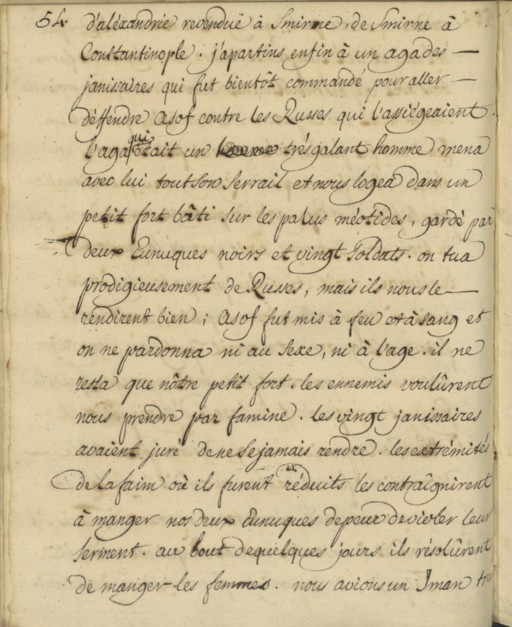 54. d'aléxandrie revenduë à Smirne, de Smirne à
Constantinople. j'apartins enfin à un aga des
janissaires qui fut bientôt commandé pour aller
déffendre Asof contre les Russes qui l'assiégeaient.
l'aga qui était un très galant homme mena
avec lui tout son serrail et nous logea dans un
petit fort bâti sur les palus méotides, gardé par
deux Eunuques noirs et vingt soldats. on tua
prodigieusement de Russes, mais ils nous le
rendirent bien; Asof fut mis à feu et à sang et
on ne pardonna ni au sexe, ni à l'age. il ne
resta que nôtre petit fort. les ennemis voulûrent
nous prendre par famine. les vingt janissaires
avaient juré de ne se jamais rendre. les extrémités
de la faim où ils furent réduits les contraignirent
à manger nos deux Eunuques de peur de violer leur
serment. au bout de quelques jours ils résolûrent
de manger les femmes. nous avions un Iman